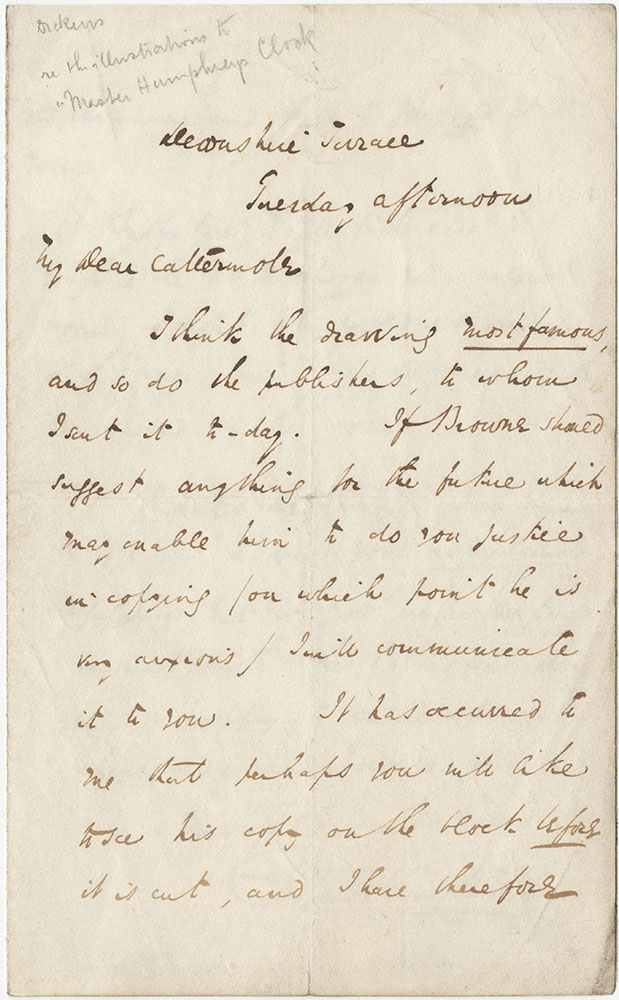 Dickens
re the illustrations to
"Master Humphreys Clock
Devonshire Terrace
Tuesday afternoon
My Dear Cattermole
I think the drawing most famous,
and so do the publishers, to whom
I sent it to-day. If Browne should
suggest anything for the future which
may enable him to do you justice
in copying (on which point he is
very anxious) I will communicate
it to you. It has occurred to
me that perhaps you will like
to see his copy on the block before
it is cut, and I have therefore